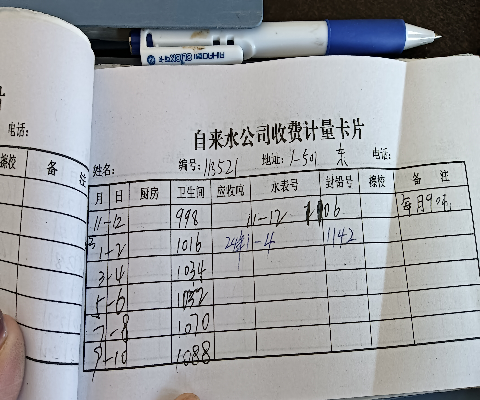 电话：
备 注
自来水公司收费计量卡片
姓名： 编号：113521 地址：1-501 东 电话：
月 日 厨房 卫生间 应收吨 水表号 封铅号 擦校 备 注
11-12 998 11-12 06 每月9吨
1-2 1016 24年11-4 11142
3-4 1034
5-6 1052
7-8 1070
9-10 1088